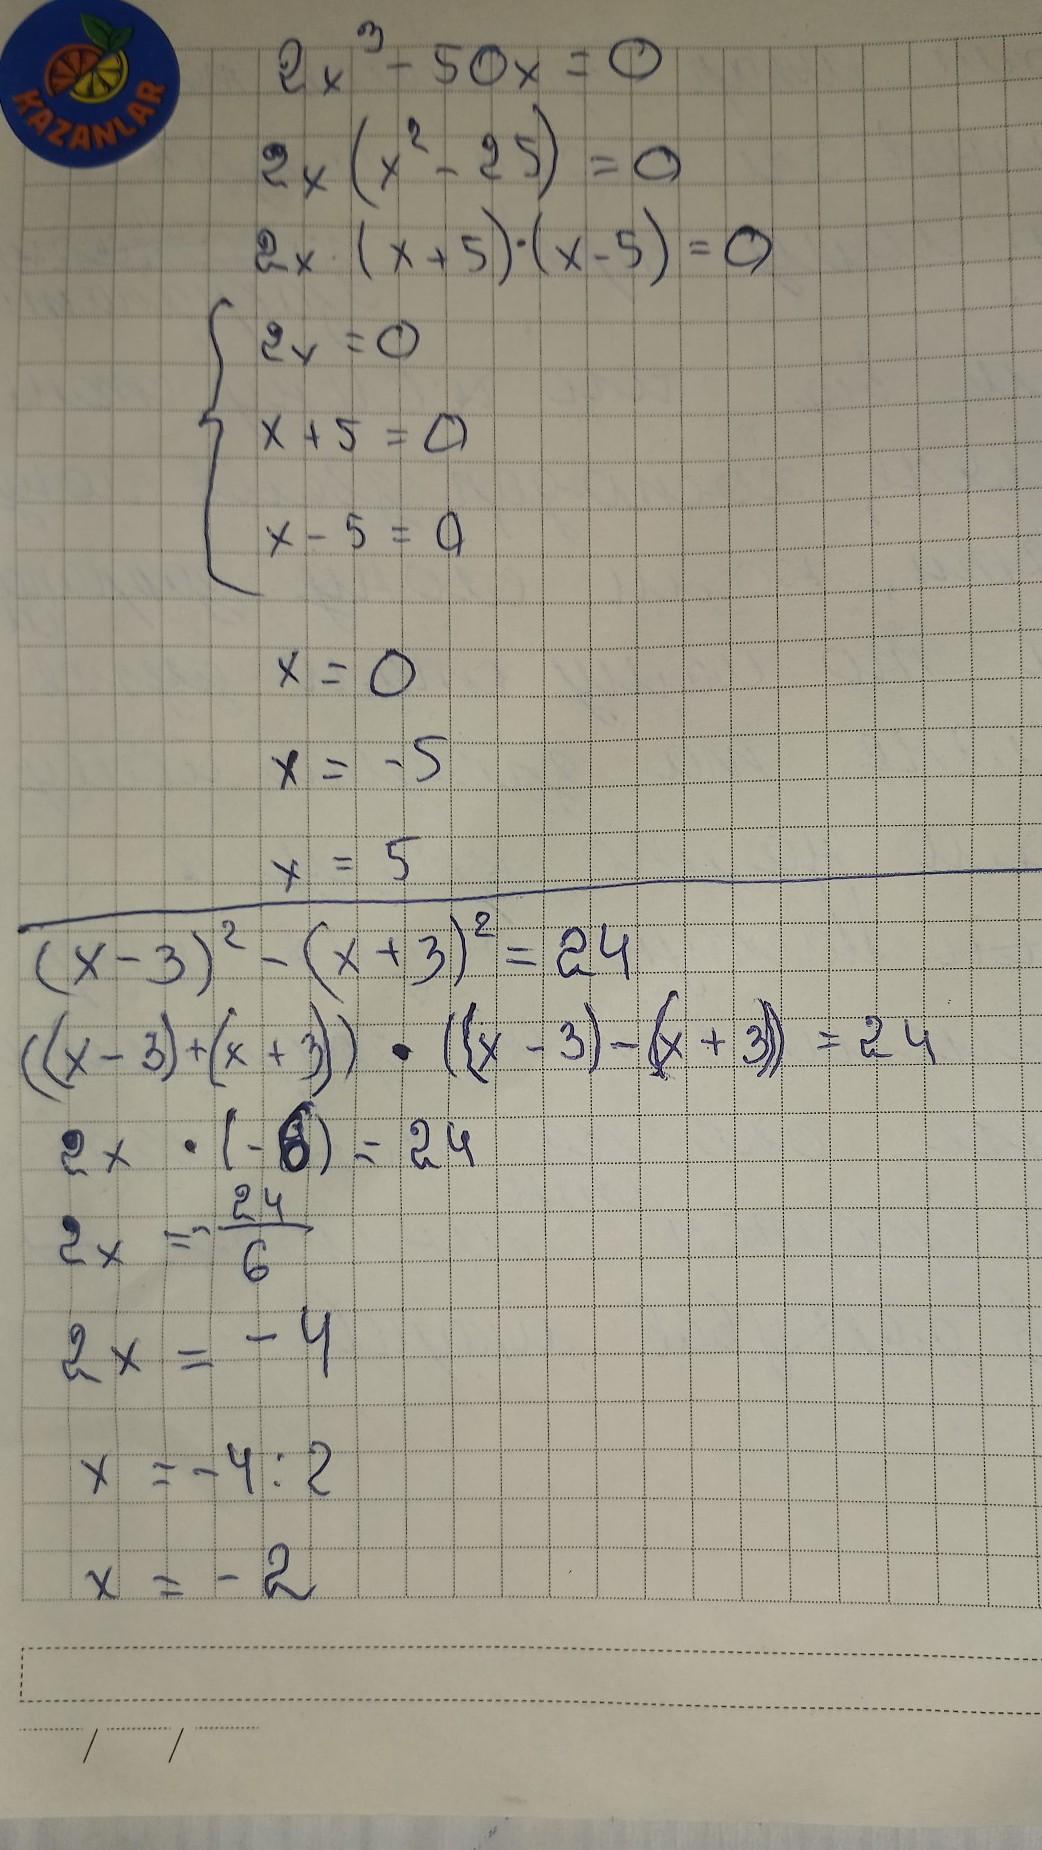 KAZANLAR
2x³ - 50x = 0
2x (x² - 25) = 0
2x · (x + 5) · (x - 5) = 0
{ 2x = 0
x + 5 = 0
x - 5 = 0
x = 0
x = -5
x = 5
(x - 3)² - (x + 3)² = 24
((x - 3) + (x + 3)) · ((x - 3) - (x + 3)) = 24
2x · (-6) = 24
2x = - 24/6
2x = -4
x = -4 : 2
x = -2
/ /